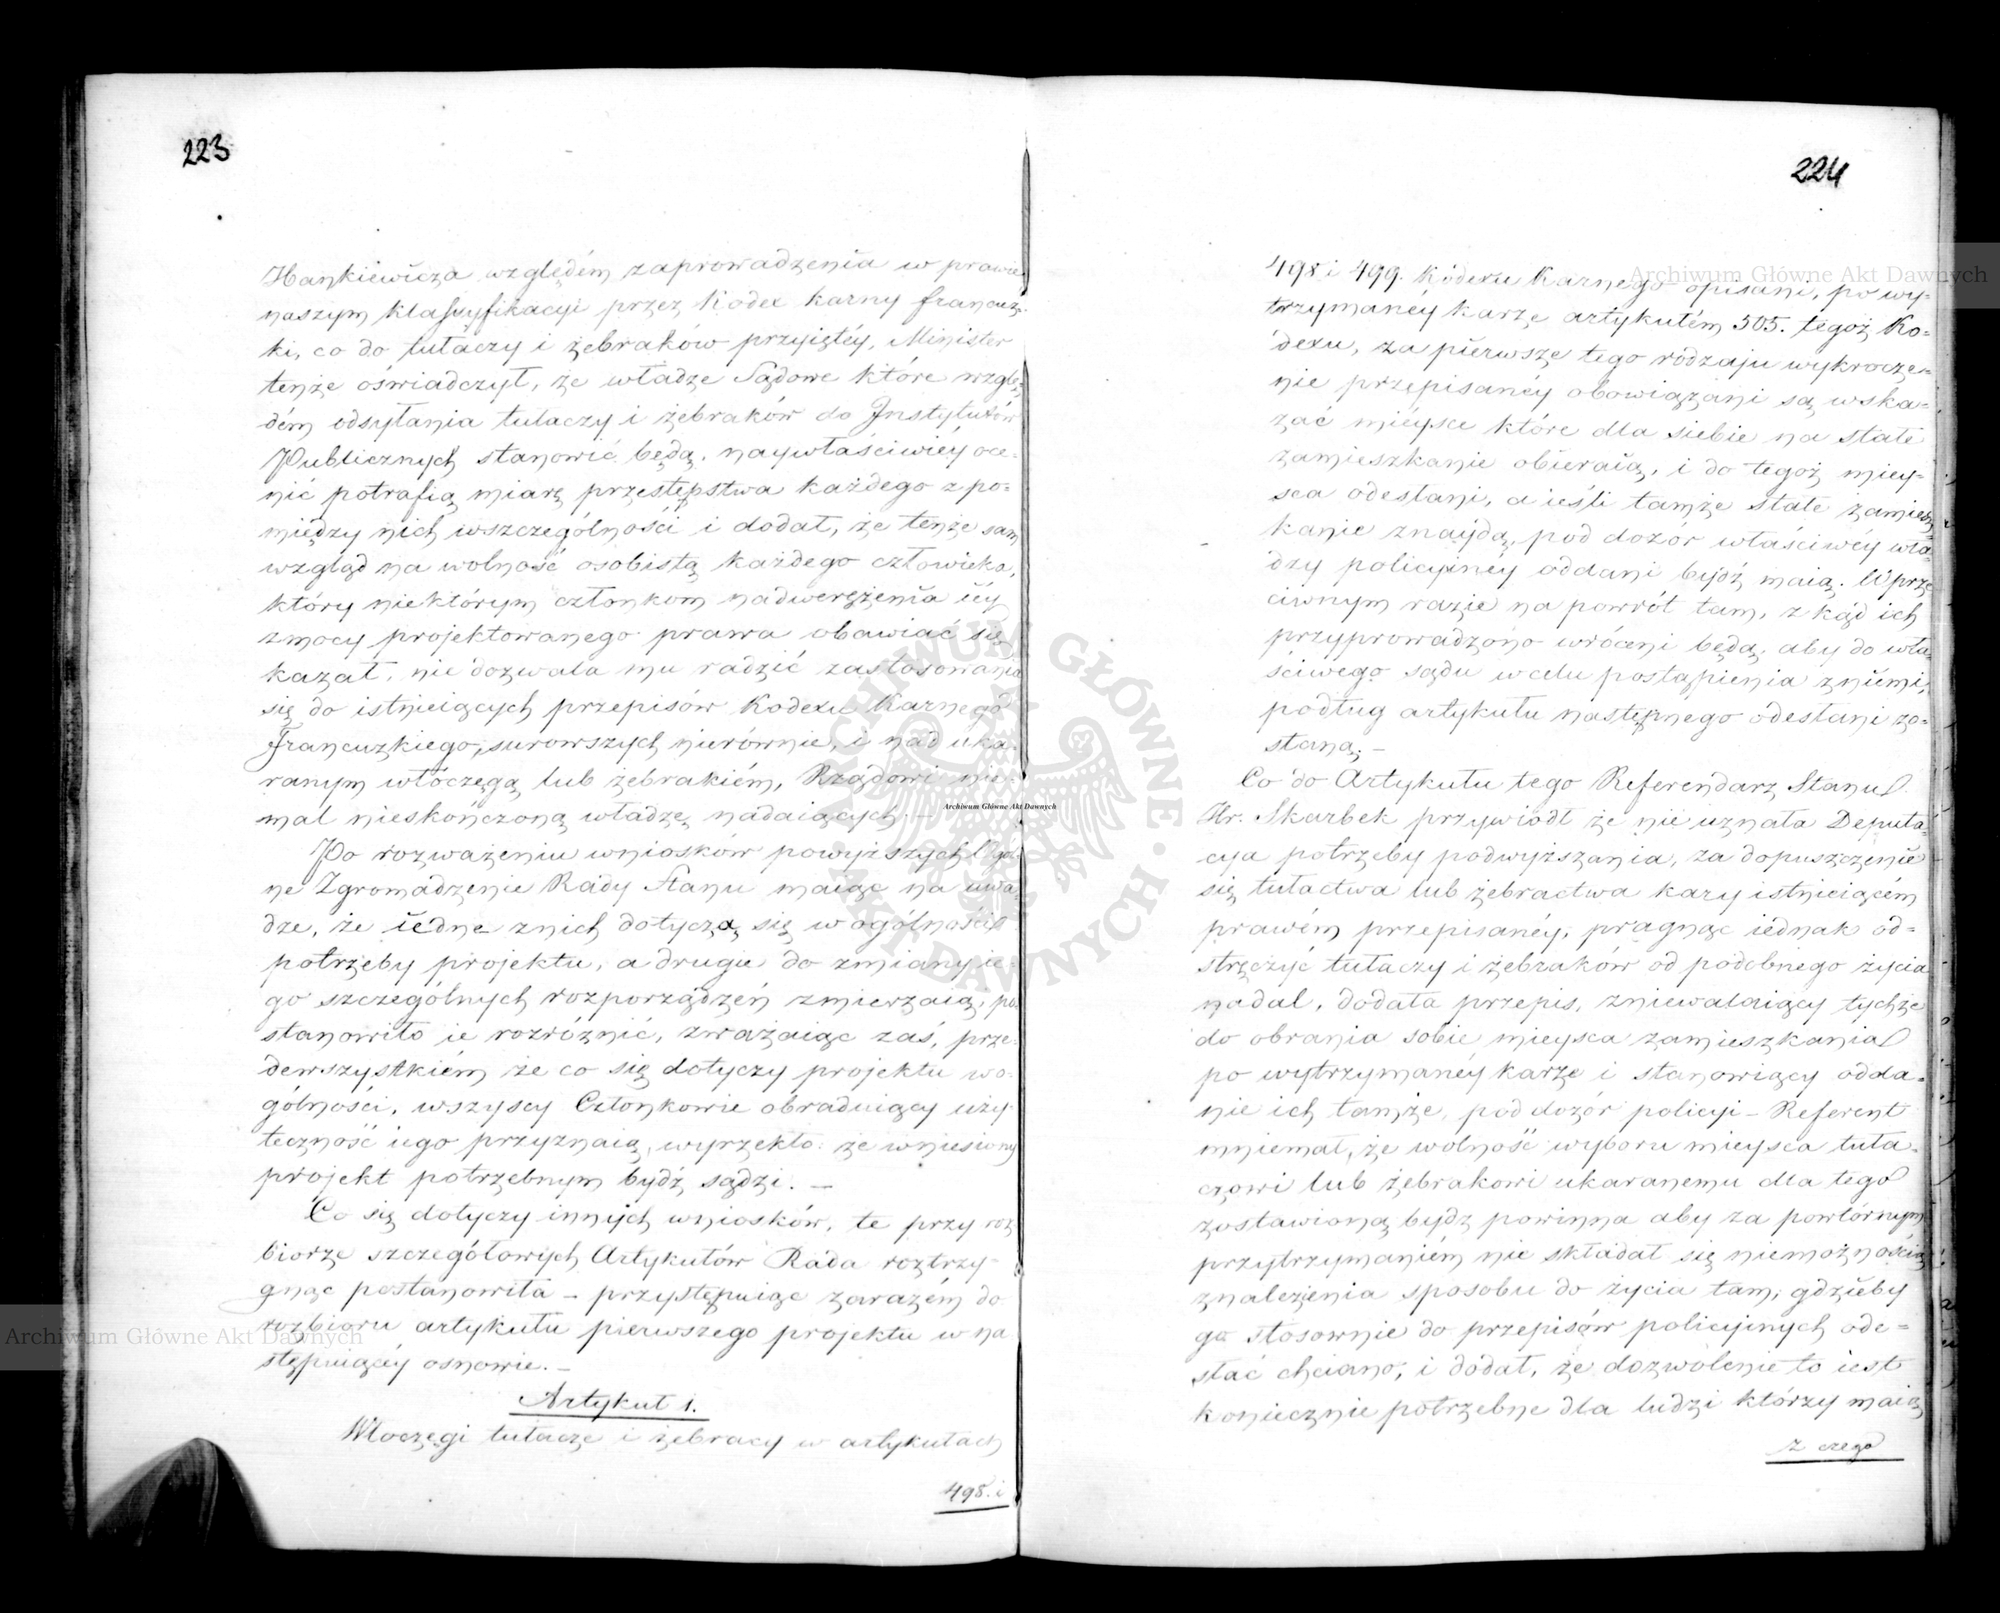 223
Hankiewicza względém zaprowadzenia w prawie
naszym klassyfikacyi przez Kodex karny francuz-
ki, co do tułaczy i żebraków przyiętéy, Minister
tenże oświadczył, że władze Sądowe które wzglę-
dém odsyłania tułaczy i żebraków do Instytutów
Publicznych stanowić będą, naywłaściwiéy oce-
nić potrafią miarę przestępstwa każdego z po-
między nich wszczególności i dodał, że tenże sam
wzgląd na wolność osobistą każdego człowieka,
który niektórym członkom nadwerężenia iéy
zmocy projektowanego prawa obawiać się
kazał, nie dozwala mu radzić zastosowania
się do istnieiących przepisów Kodexu Karnego
Francuzkiego, surowszych nierównie, i nad uka-
ranym włóczęgą lub żebrakiém, Rządowi nie-
mal nieskończoną władzę nadaiących. —
Po rozważeniu wniosków powyższych Ogól-
ne Zgromadzenie Rady Stanu maiąc na uwa-
dze, że iedne z nich dotyczą się w ogólności
potrzeby projektu, a drugie do zmiany ie-
go szczególnych rozporządzeń zmierzaią, po
stanowiło ie rozróżnić, zważaiąc zaś, prze-
dewszystkiém że co się dotyczy projektu wo-
gólności, wszyscy Członkowie obraduiący uży-
teczność iego przyznaią, wyrzekło: że wniesiony
projekt potrzebnym bydź sądzi. —
Co się dotyczy innych wniosków, te przy roz
biorze szczegółowych Artykułów Rada roztrzy-
gnąć postanowiła — przystępuiąc zarazém do
rozbioru artykułu pierwszego projektu w na
stępuiącéy osnowie. —
Artykuł 1.
Włoczęgi tułacze i żebracy w artykułach
498. i
224
498 i 499. Kodexu Karnego opisani, po wy-
trzymanéy karze artykułém 505. tegoż Ko-
dexu, za pierwsze tego rodzaju wykrocze-
nie przepisanéy obowiązani są wska-
zać mieysce które dla siebie na stałe
zamieszkanie obieraią, i do tegoż miey-
sca odesłani, a ieśli tamże stałe zamiesz-
kanie znaydą, pod dozór właściwéy wła-
dzy policyinéy oddani bydź maią. W prze
ciwnym razie na powrót tam, z kąd ich
przyprowadzono wróceni będą, aby do wła-
ściwego sądu w celu postąpienia z niemi,
podług artykułu następnego odesłani zo-
staną. —
Co do Artykułu tego Referendarz Stanu
Hr. Skarbek przywiódł że nie uznała Deputa-
cya potrzeby podwyższania, za dopuszczenie
się tułactwa lub żebractwa kary istnieiącém
prawém przepisanéy, pragnąc iednak od-
stręczyć tułaczy i żebraków od podobnego życia
nadal, dodała przepis, zniewalaiący tychże
do obrania sobie mieysca zamieszkania
po wytrzymanéy karze i stanowiący odda-
nie ich tamże, pod dozór policyi — Referent
mniemał, że wolność wyboru mieysca tuła-
czowi lub żebrakowi ukaranemu dla tego
zostawioną bydz powinna aby za powtórnym
przytrzymaniém nie składał się niemożnością
znalezienia sposobu do życia tam, gdzieby
go stosownie do przepisów policyinych ode-
słać chciano, i dodał, że dozwolenie to iest
koniecznie potrzebne dla ludzi którzy maią
z czego
Archiwum Główne Akt Dawnych
Archiwum Główne Akt Dawnych
Archiwum Główne Akt Dawnych
ARCHIWUM GŁÓWNE · AKT DAWNYCH ·